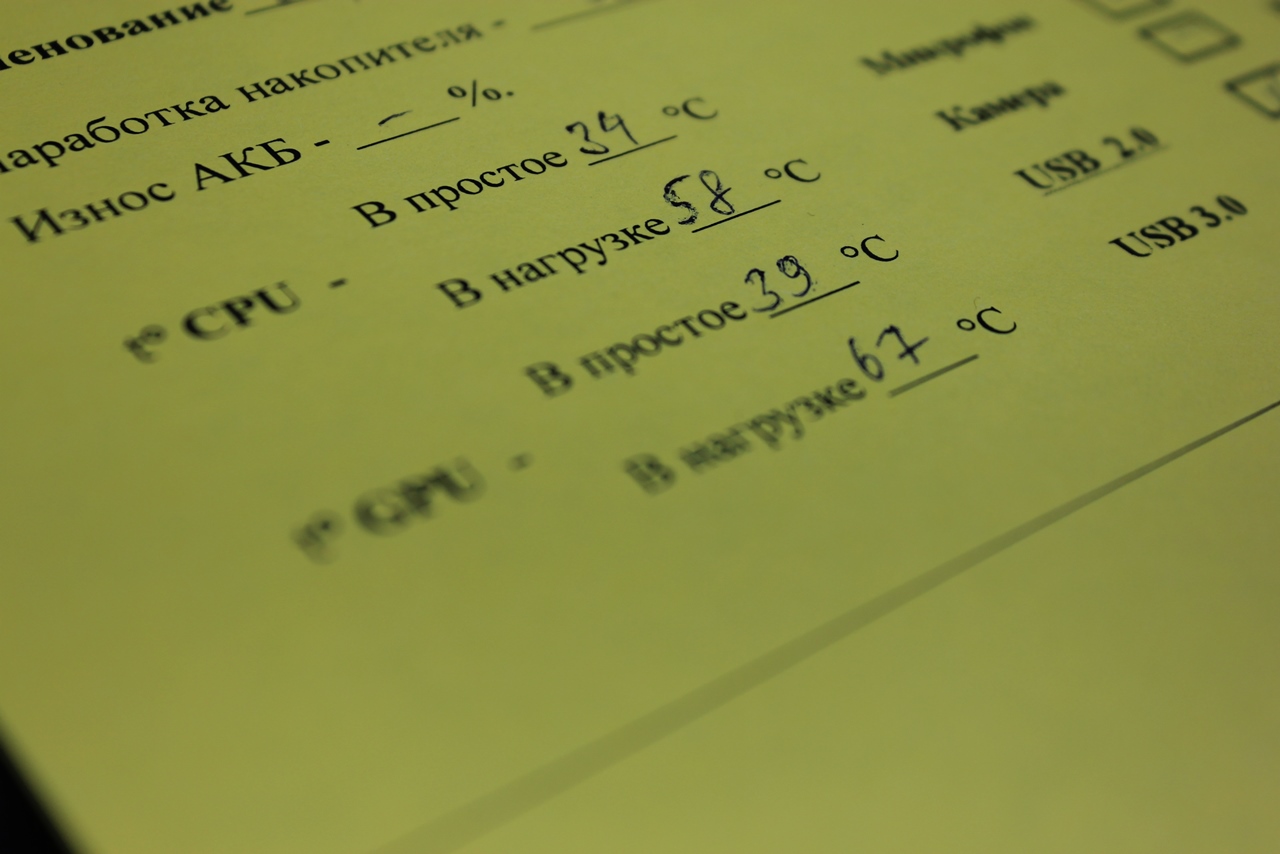 енование
наработка накопителя -
Износ АКБ - – %.
t° CPU -
В простое 34 °C
В нагрузке 58 °C
t° GPU -
В простое 39 °C
В нагрузке 67 °C
Микрофон
Камера
USB 2.0
USB 3.0